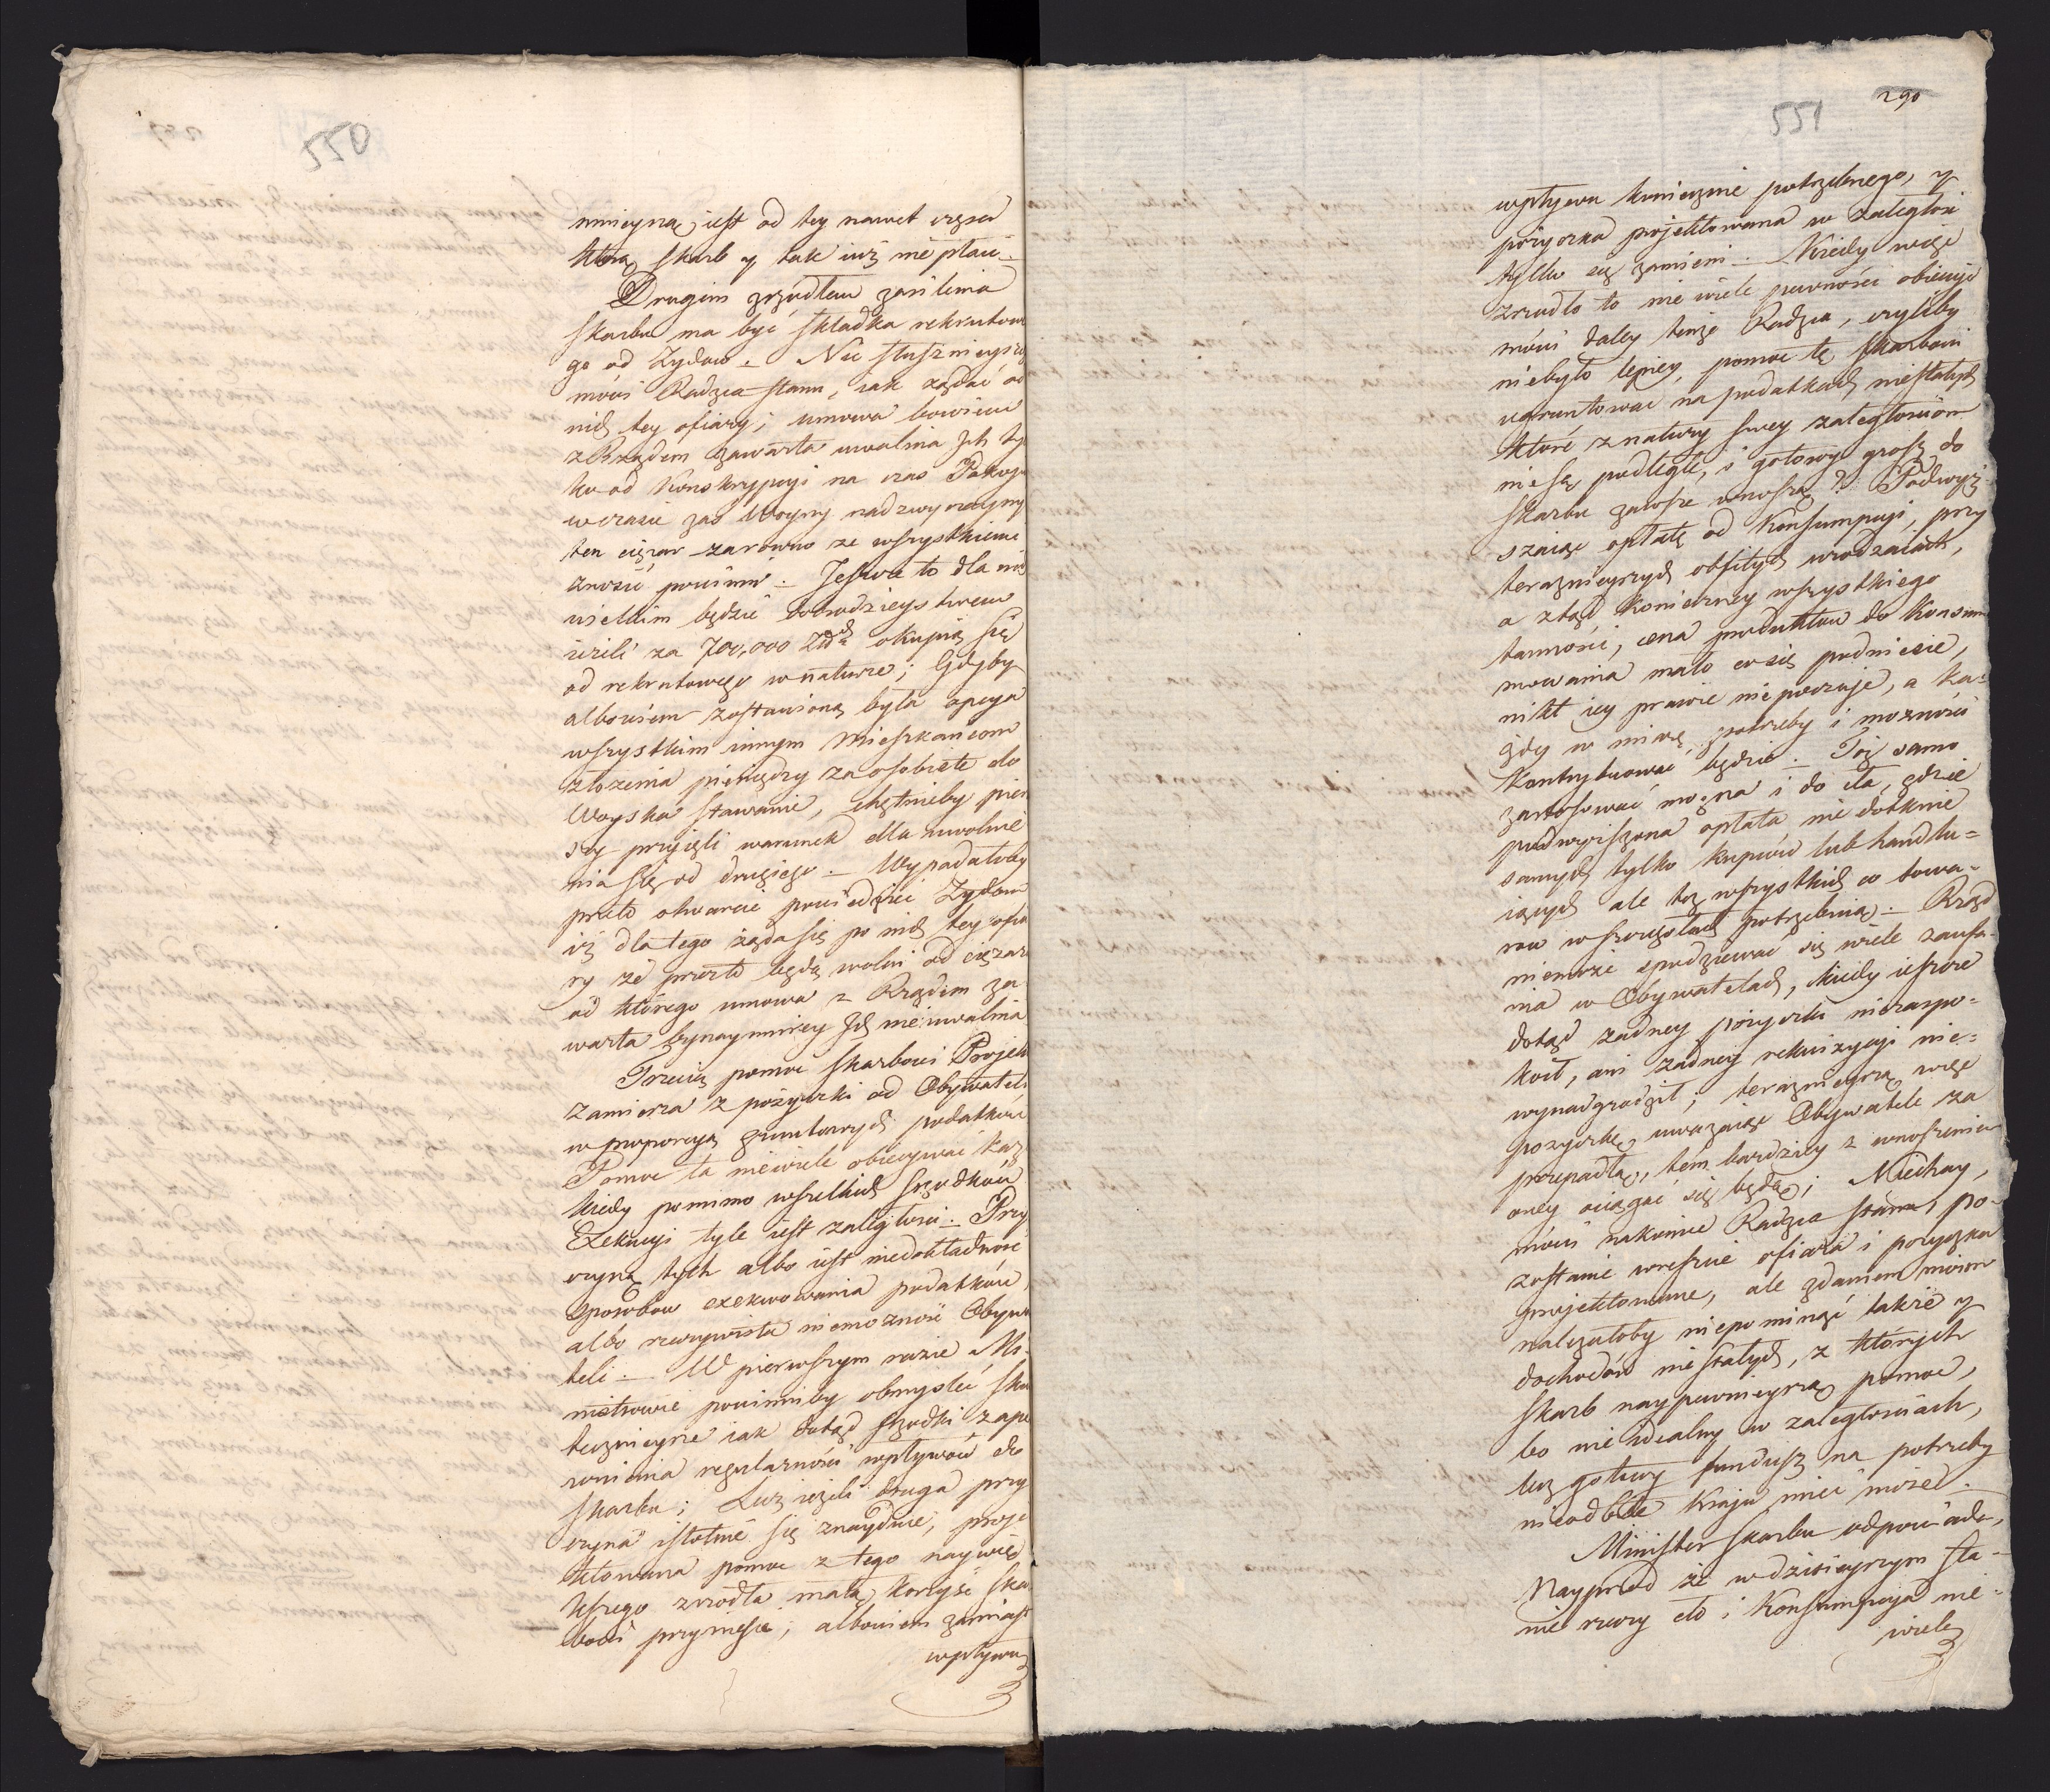 550
mnieyszą iest od tey nawet częsci
którą skarb y tak iuż nie płaci.
Drugim zrzódłem zasilenia
skarbu ma być składka rekrutowe
go od Zydow. Nic słusznieyszego
mówi Radzca Stanu, iak żądać od
nich tey ofiary; umowa bowiem
z Rządem zawarta uwalnia Jch tyl
ko od Konskrypcyi na czas Pokoju
w czasie zaś Woyny nadzwyczayny
ten ciężar zarowno ze wszystkiemi
znosić powinni. Jeszcze to dla nich
wielkim będzie dobrodzieystwem
ieżeli za 700,000 Złłch okupią się
od rekrutowego w naturze; Gdyby
albowiem zostawioną była opcya
wszystkim innym Mieszkańcom
złożenia pieniędzy za osobiste do
Woyska stawanie, chętnieby pier
szy przyięli warunek dla uwolnie
nia się od drugiego. Wypadałoby
przeto otwarcie powiedzieć Zydom
iż dla tego żąda się po nich tey ofia
ry że przez to będą wolni od ciężaru
od którego umowa z Rządem za
warta bynaymniey Jch nie uwalnia
Trzecią pomoc skarbowi Projekt
zamierza z pożyczki od Obywateli
w proporcyą gruntowych podatków
Pomoc ta niewiele obiecywać każe
kiedy pomimo wszelkich srzodków
Exekucyi tyle iest zaległosci. Przy
czyną tych albo iest niedokładność
sposobow exekwowania podatków,
albo rzeczywista niemożność Obywa
teli. W pierwszym razie Mi
nistrowie powinniby obmysleć sku
tecznieysze iak dotąd srzodki zape
wnienia regularności wpływów do
skarbu; Lecz ieżeli druga przy
czyna istotnie się znayduie, proje
ktowana pomoc z tego naywięk
kszego zrzodła małą korzyść skar
bowi przyniesie; albowiem zamiast
wpływu
290
551
wpływu koniecznie potrzebnego, y
pożyczka projektowana w zaległosć
tylko się zamieni. Kiedy więc
zrzodło to nie wiele pewności obiecuje
mówi daley tenże Radzca, czyliby
niebyło lepiey, pomoc tę skarbowi
ugruntować na podatkach niestałych
które z natury swey zaległosciom
nie są podległe, i gotowy grosz do
skarbu zawsze wnoszą? Podwyż
szaiąc opłatę od Konsumpcyi, przy
teraznieyszych obfitych urodzaiach,
a ztąd konieczney wszystkiego
tanności, cena produktow do Konsum
mowania mało co się podniesie,
nikt iey prawie niepoczuje, a ka=
żdy w miarę potrzeby i możności
Kontrybuować będzie. Toż samo
zastosować można i do cła, gdzie
podwyższona opłata nie dotknie
samych tylko kupców lub handlu=
iących ale też wszystkich co towa=
row w szczegołach potrzebuią. Rząd
niemoże spodziewać się wiele zaufa
nia w Obywatelach, kiedy ieszcze
dotąd żadney pożyczki niezaspo=
koił, ani żadney rekwizycyi nie=
wynadgrodził; teraznieyszą więc
pożyczkę uważaiąc Obywatele za
przepadłą, tém bardziey z wnoszeniem
oney ociągać się będą; Niechay,
mówi nakoniec Radzca stanu, po=
zostanie wreszcie ofiara i pożyczka
projektowane, ale zdaniem moiem
należałoby niepominąć także y
dochodów niestałych, z których
skarb naypewnieyszą pomoc,
bo nie idealny w zaległościach,
lecz gotowy fundusz na potrzeby
nieodbite Kraju mieć może.
Minister skarbu odpowiada,
Nayprzod że w dzisieyszym sta=
nie rzeczy cło i Konsumpcyja nie=
wiele